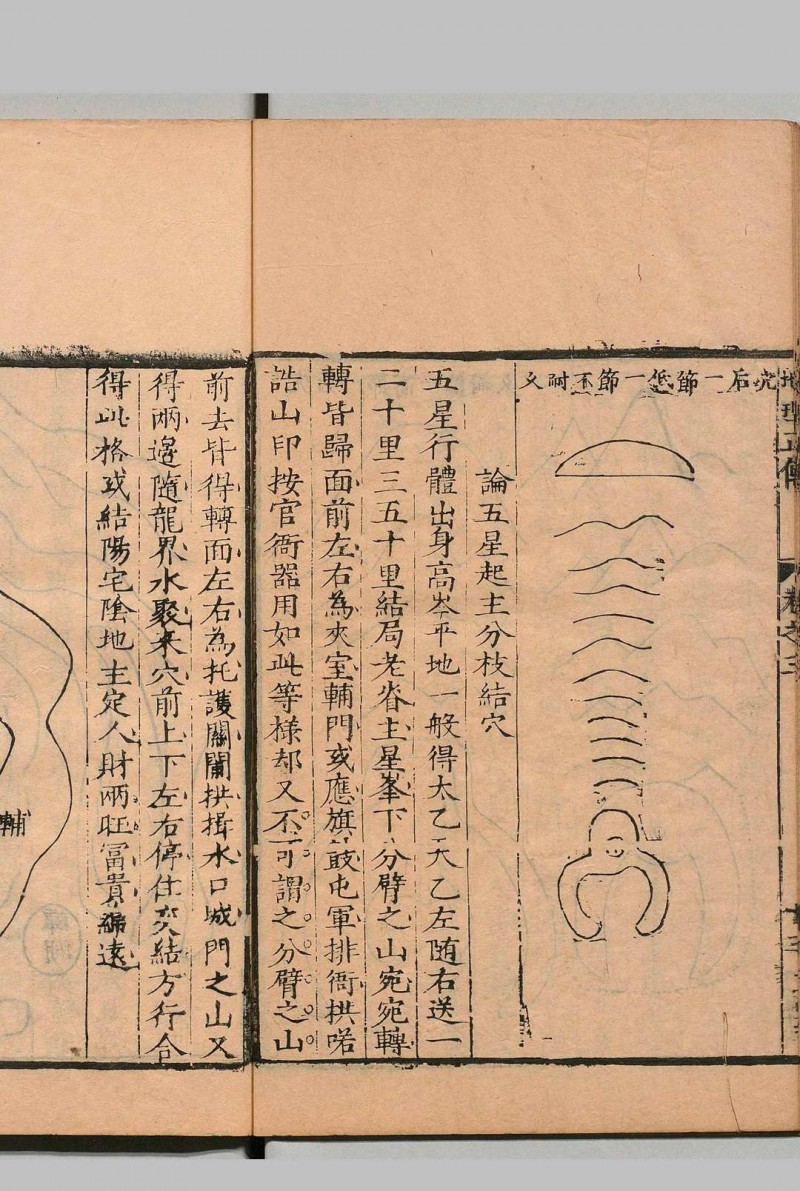 地理正傳 卷之三
穴后一節低一節不耐久
論五星起主分枝結穴
五星行體出身高岑平地一般得太乙天乙左隨右送一
二十里三五十里結局老脊主星峯下分臂之山宛宛轉
轉皆歸面前左右為夾室輔門或應旗鼓屯軍排衙拱喏
誥山印按官衙器用如此等樣却又不可謂之分臂之山
前去皆得轉面左右為托護關闌拱揖水口城門之山又
得兩邊隨龍界水聚来穴前上下左右停住交結方行合
得此格或結陽宅陰地主定人財兩旺冨貴綿遠
輔